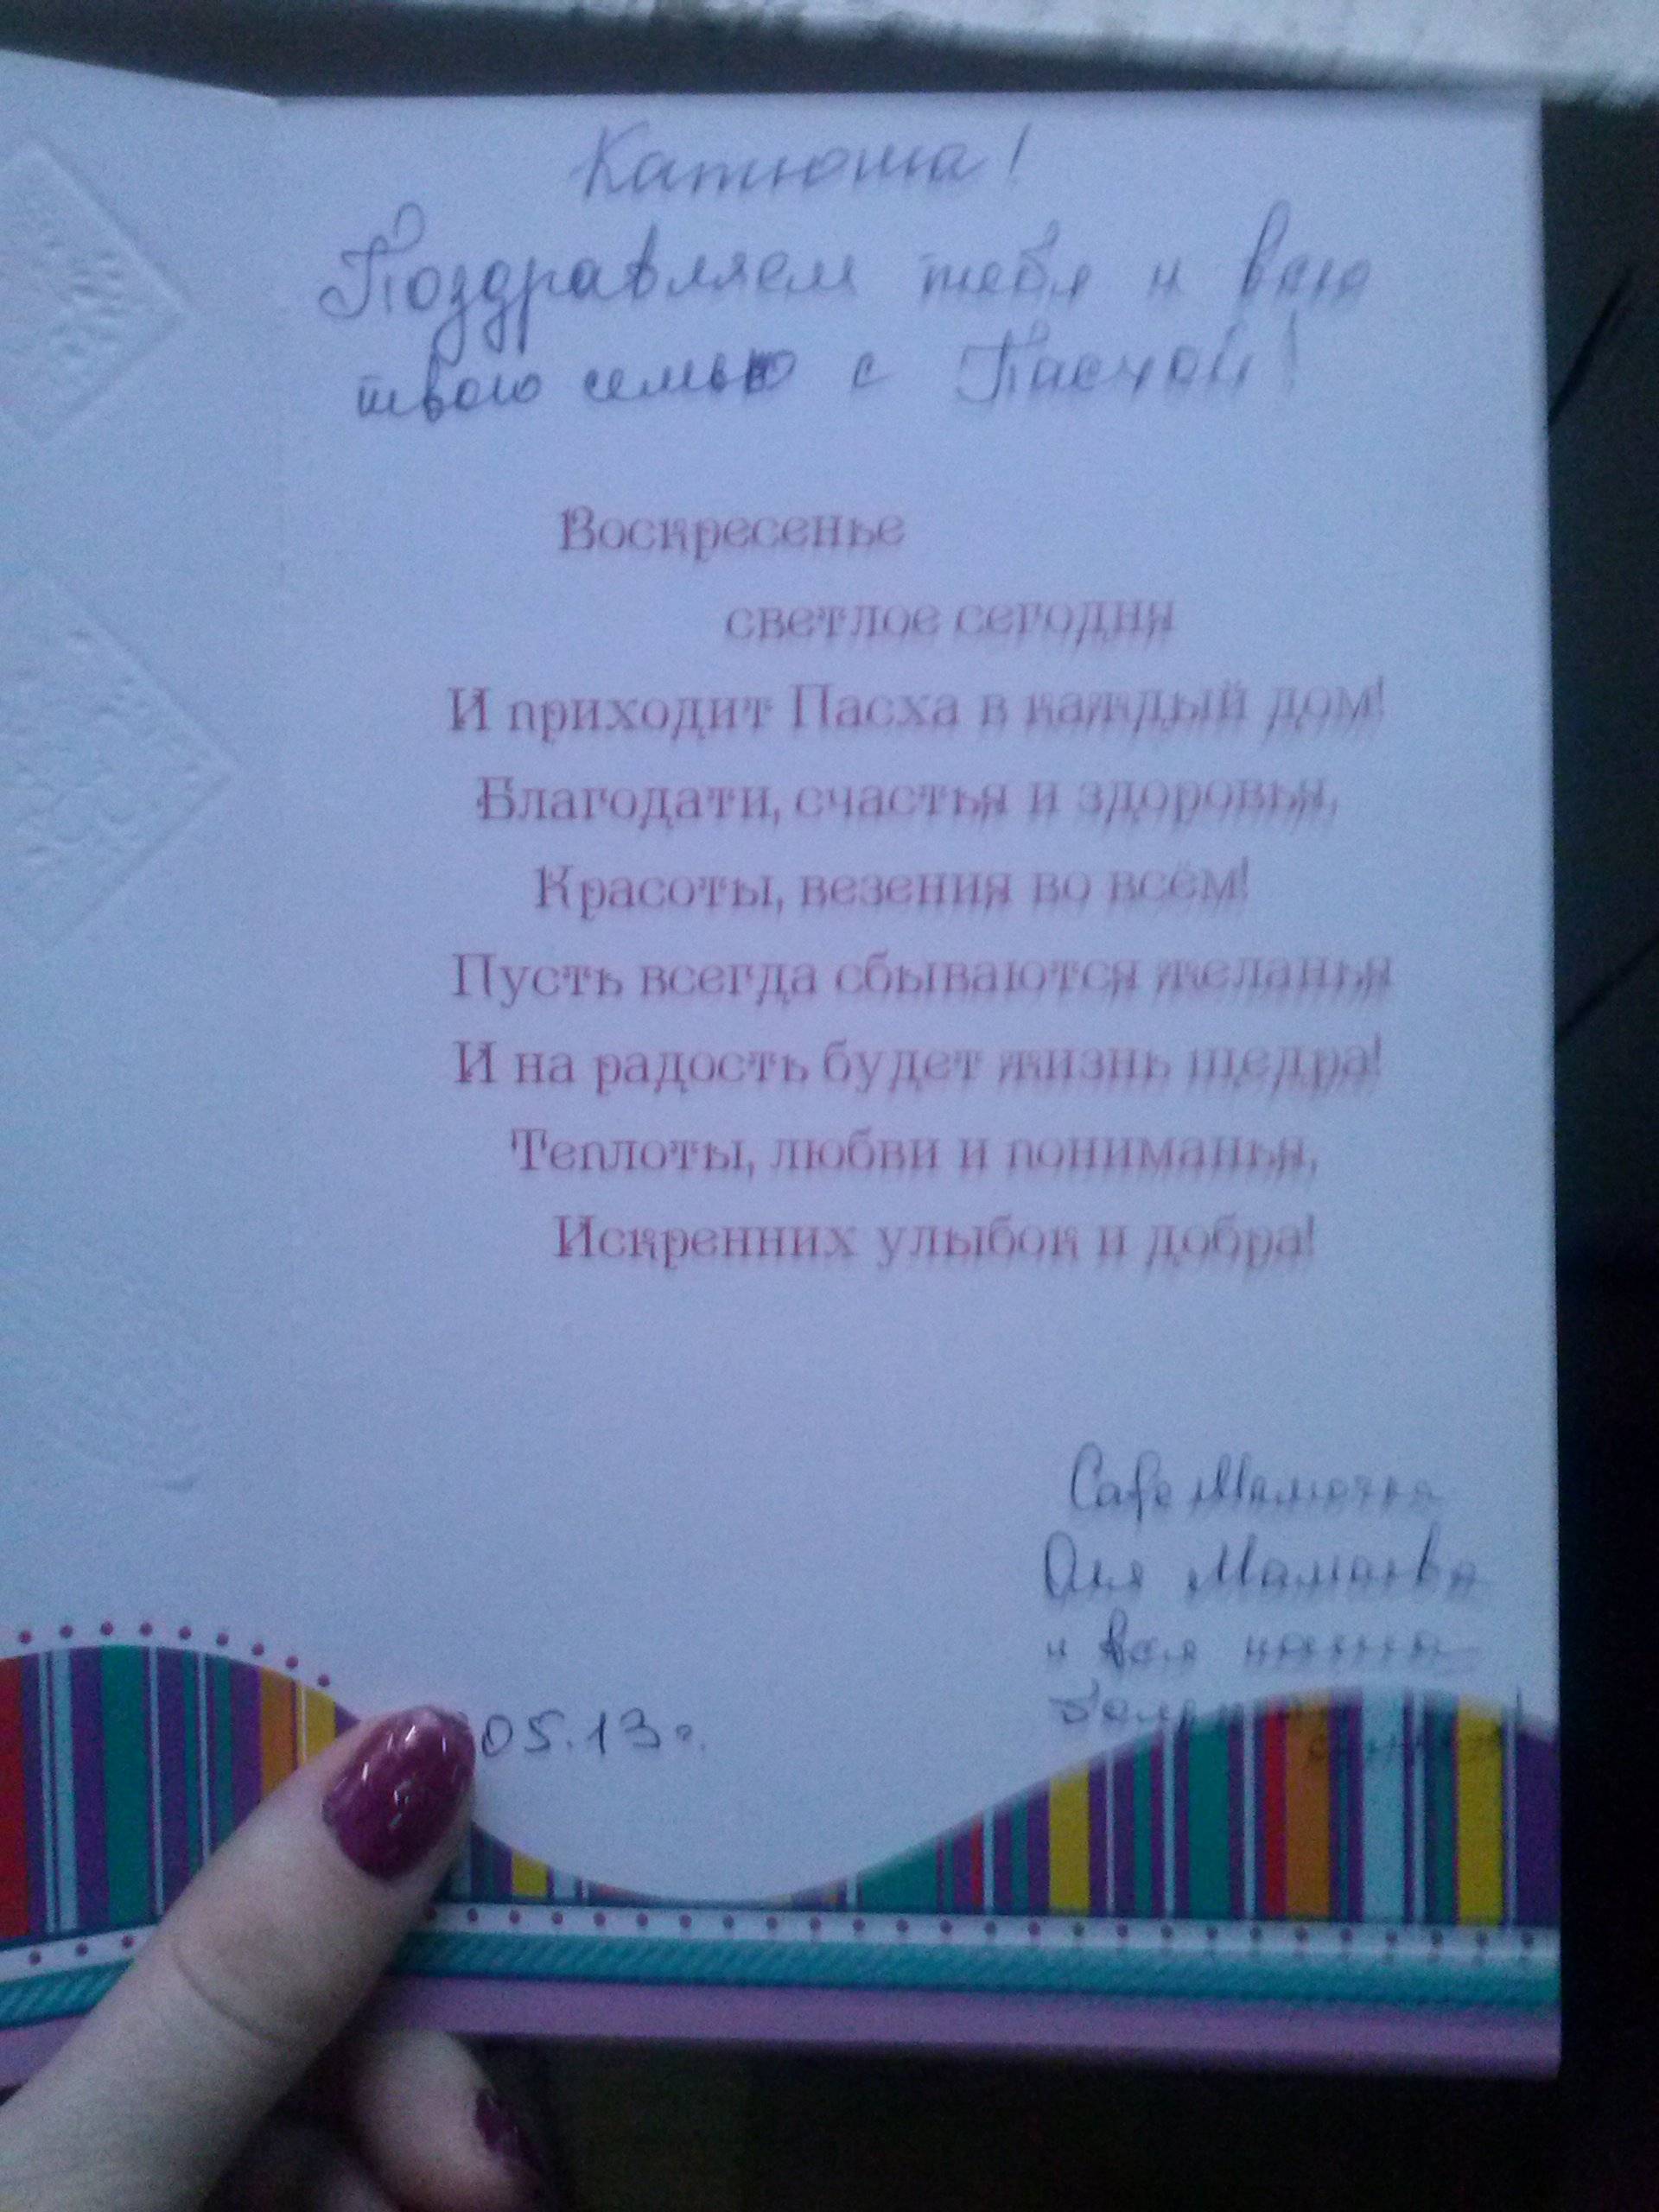 Катюша!
Поздравляем тебя и всю
твою семью с Пасхой!
Воскресенье
светлое сегодня
И приходит Пасха в каждый дом!
Благодати, счастья и здоровья,
Красоты, везения во всём!
Пусть всегда сбываются желанья
И на радость будет жизнь щедра!
Теплоты, любви и пониманья,
Искренних улыбок и добра!
Cafe Мамочка
Оля Мамаева
и вся наша
05.13г.